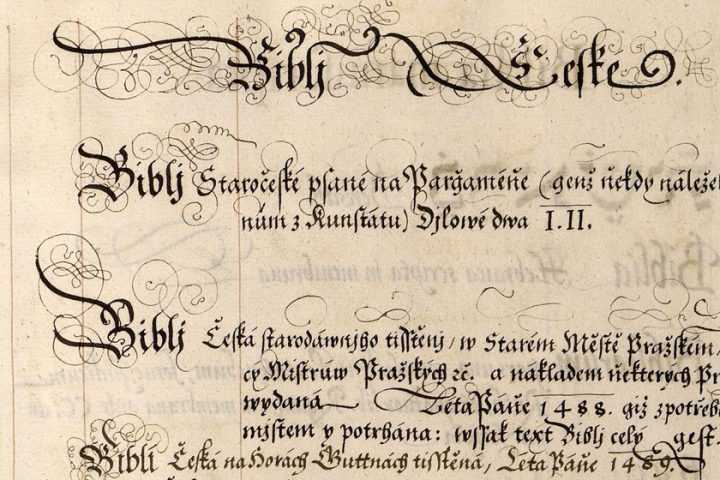 Biblj České.
Biblj Staročeské psané na Pargaméňe (genž ňekdy náležel
núm z Kunstátu) Djlowé dwa I.II.
Biblj Česká starodáwnjho tisstěnj, w Starém Městě Pražském,
cy Mistrůw Pražských ꝛč. a nákladem ňekterých Pr
wydaná Léta Páňe 1488. giž zpotřeb
mjstem y potrhána: wssak text Biblj celý gest.
Biblj Česká na Horách Guttnách tisstěná, Léta Páňe 1489.